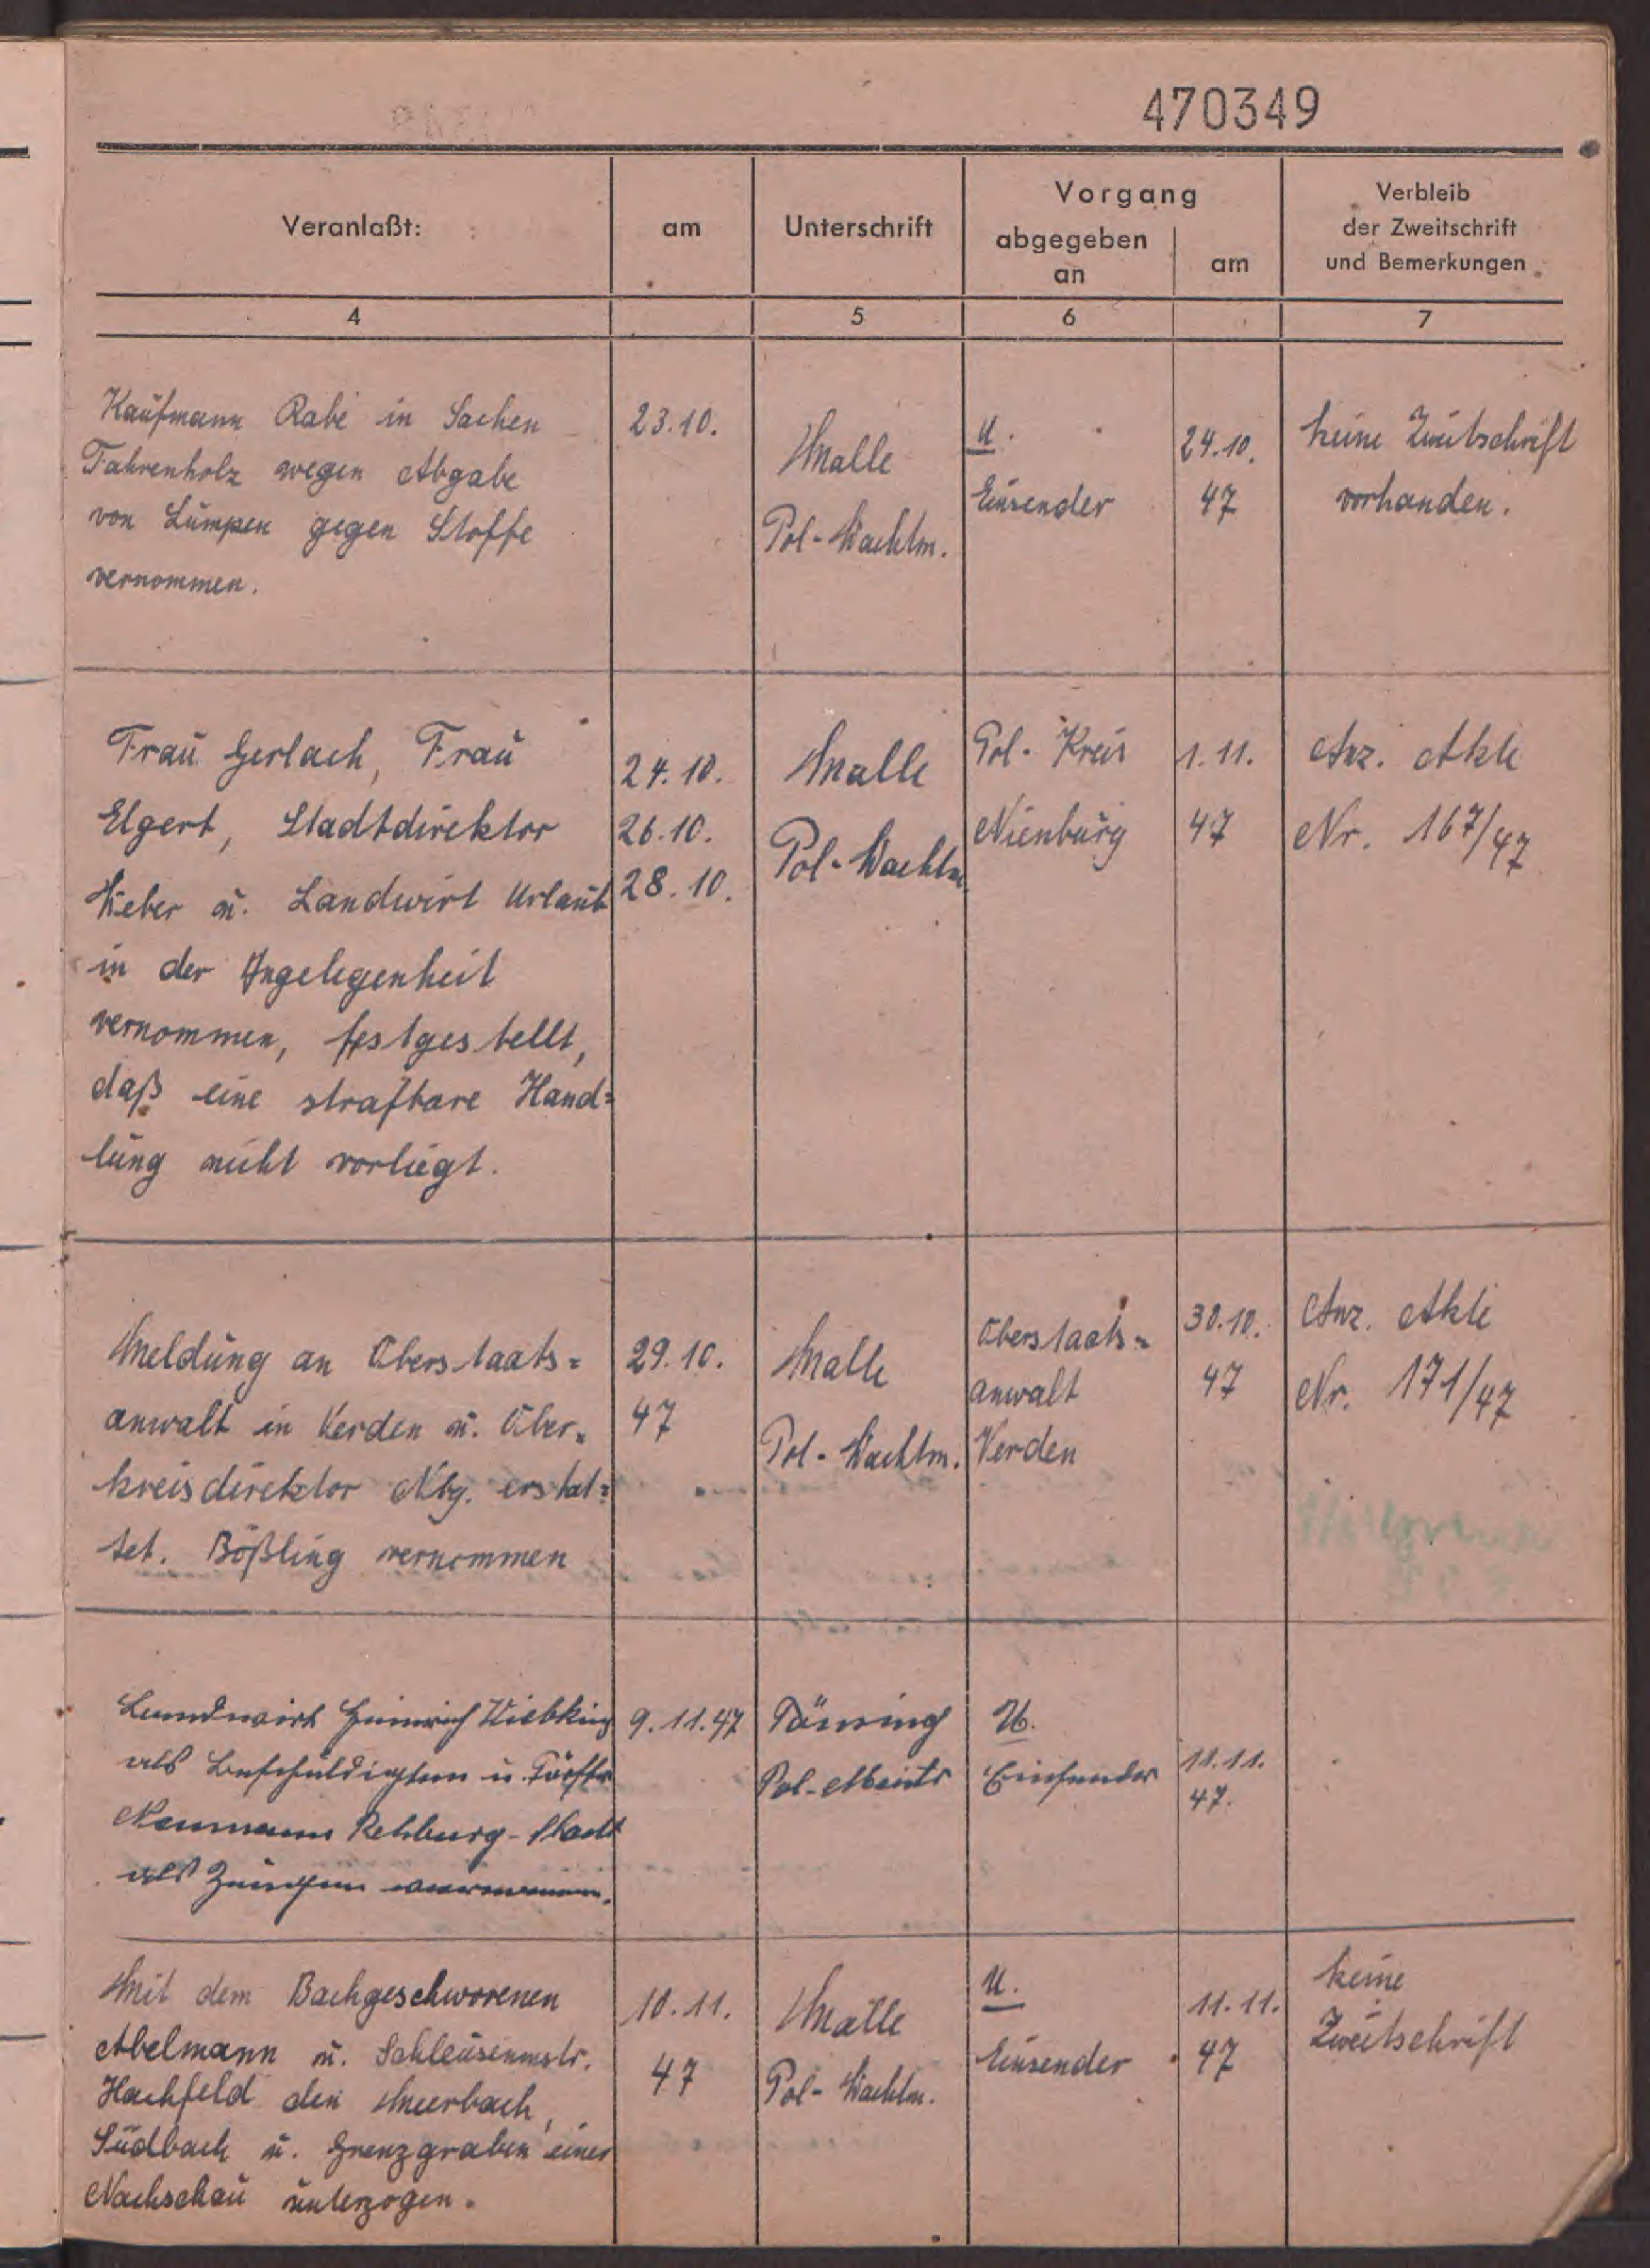 470349
Veranlaßt:
am
Unterschrift
Vorgang
abgegeben
an
am
Verbleib
der Zweitschrift
und Bemerkungen
4
5
6
7
Kaufmann Rabe in Sachen
Fahrenholz wegen Abgabe
von Lumpen gegen Stoffe
vernommen.
23.10.
Malle
Pol-Wachtm.
U.
Einsender
24.10.
47
keine Zweitschrift
vorhanden.
Frau Gerlach, Frau
Elgert, Stadtdirektor
Weber u. Landwirt Urlaub
in der Angelegenheit
vernommen, festgestellt,
daß eine strafbare Hand=
lung nicht vorliegt.
24.10.
26.10.
28.10.
Malle
Pol-Wachtm.
Pol-Kreis
Nienburg
1.11.
47
Anz. Akte
Nr. 167/47
Meldung an Oberstaats=
anwalt in Verden u. Ober=
kreisdirektor Nbg. erstat=
tet. Bößling vernommen
29.10.
47
Malle
Pol-Wachtm.
Oberstaats=
anwalt
Verden
30.10.
47
Anz. Akte
Nr. 171/47
Landwirt Heinrich Wiebking
als Beschuldigten u. Förster
Neumann Rehburg-Stadt
als Zeugen vernommen.
9.11.47
Pol-Mstr
U.
Einsender
11.11.
47.
Mit dem Bachgeschworenen
Abelmann u. Schleusenmstr.
Hachfeld den Meerbach,
Südbach u. Grenzgraben einer
Nachschau unterzogen.
10.11.
47
Malle
Pol-Wachtm.
U.
Einsender
11.11.
47
keine
Zweitschrift